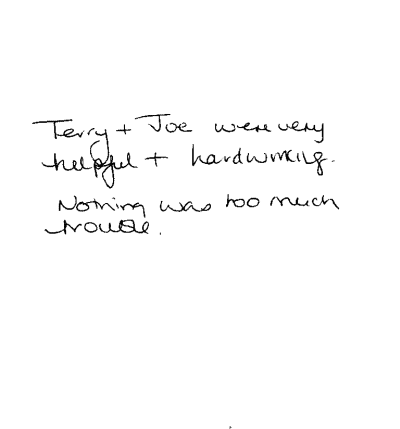 Terry + Joe were very
helpful + hardworking.
Nothing was too much
trouble.